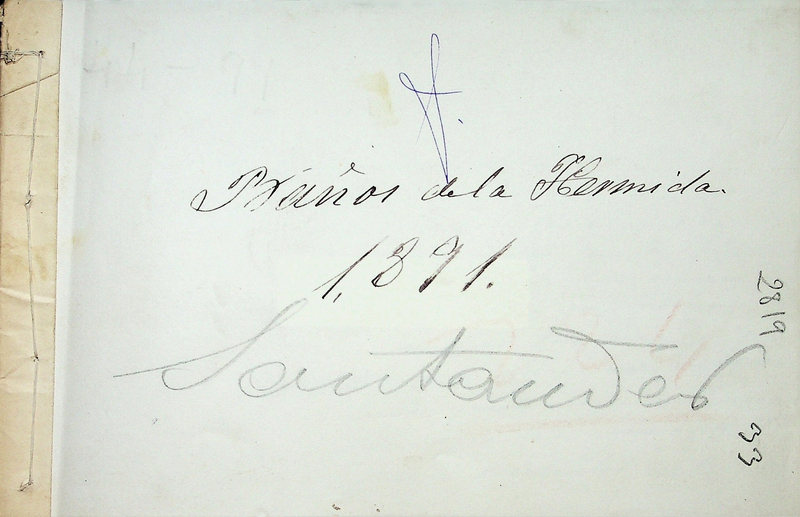 Baños de la Hermida.
1,891.
Santander
2819
33